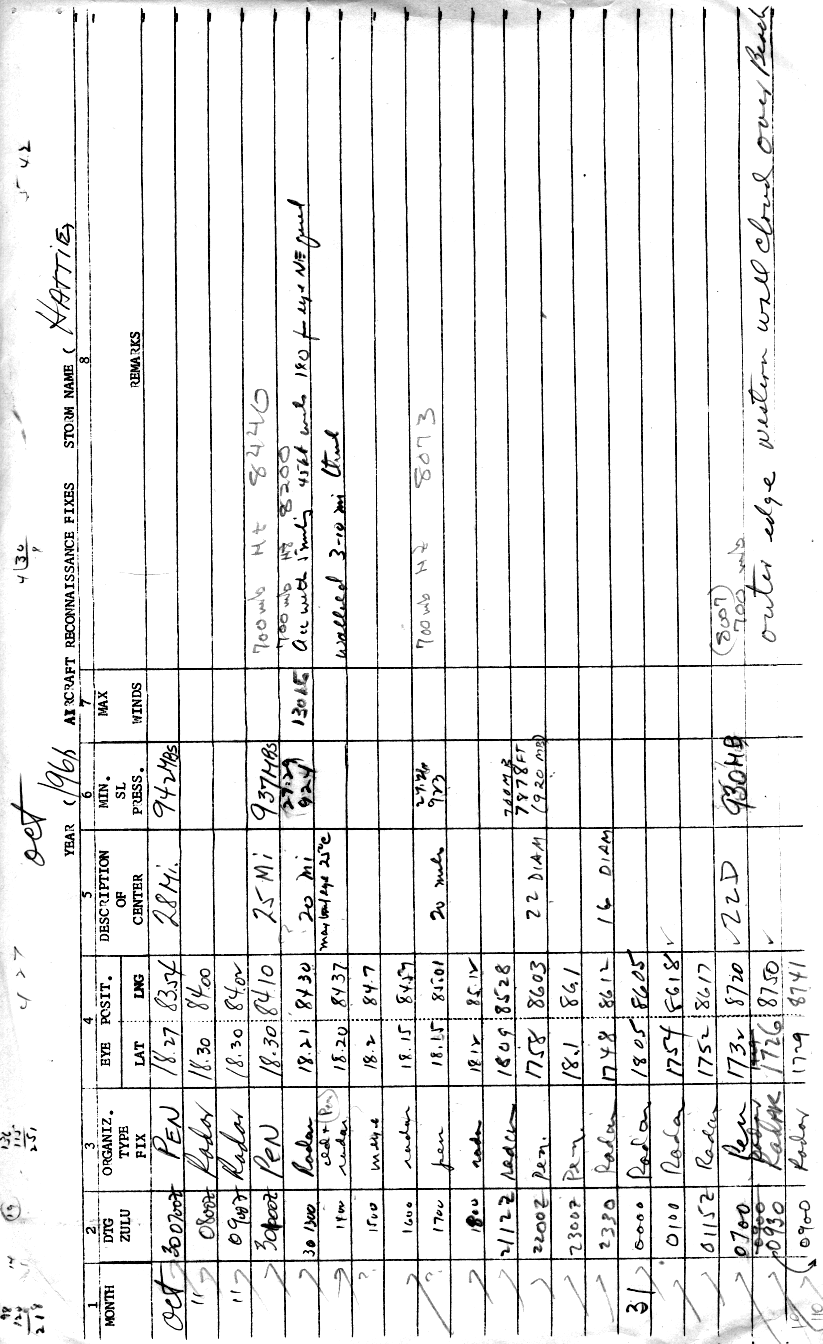 oct
4 27
4 30
YEAR (1961 AIRCRAFT RECONNAISSANCE FIXES STORM NAME ( HATTIE)
1 2 3 4 5 6 7 8
MONTH DTG ZULU ORGANIZ. TYPE FIX EYE POSIT. LAT LNG DESCRIPTION OF CENTER MIN. SL PRESS. MAX WINDS REMARKS
oct 300700Z PEN 18.27 8354 28 Mi. 942 MBS
" 0800Z Radar 18.30 8400
" 0900Z Radar 18.30 8402
301000Z PEN 18.30 8410 25 Mi 937 MBS 700 mb Ht 8440
301300 Radar 18.21 8430 20 mi 27.29 924 130 kts 700 mb Ht 8200
1400 radar 18.20 8437 walled 3-10 mi thick
1500 18.2 84.7
1600 radar 18.15 8459
1700 pen 18.15 8501 20 miles 923 700 mb Hz 8073
1800 radar 18.12 8512
2112Z radar 1809 8528 700 MB
2200Z Pen. 1758 8603 22 DIAM 7878 FT (920 MB)
2300Z Pen. 18.1 861
2330 Radar 1748 8612 16 DIAM
31 0000 Radar 1805 8605
0100 Radar 1754 8618
0115Z Radar 1752 8617
0700 Pen 1732 8720 22D 930 MB (8007) 700 mb
0930 Radar 1726 8750 outer edge western wall cloud over Beach
0900 Radar 1729 8741